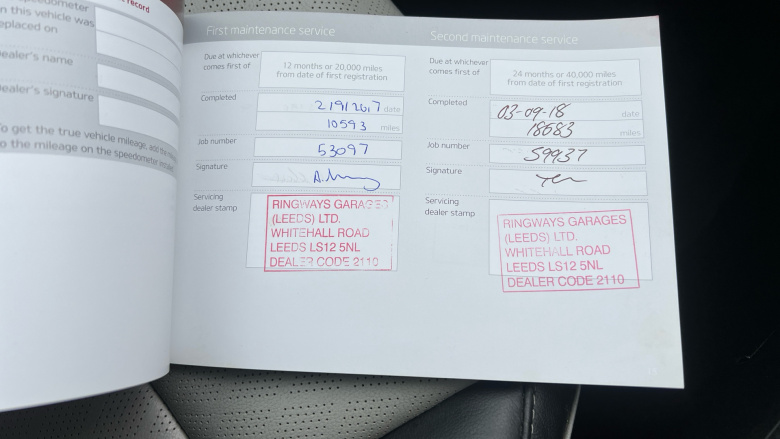 record
speedometer
n this vehicle was
eplaced on
ealer's name
ealer's signature
o get the true vehicle mileage, add the
o the mileage on the speedometer
First maintenance service
Due at whichever
comes first of
12 months or 20,000 miles
from date of first registration
Completed
21912017 date
10593 miles
Job number
53097
Signature
Servicing
dealer stamp
RINGWAYS GARAGES
(LEEDS) LTD.
WHITEHALL ROAD
LEEDS LS12 5NL
DEALER CODE 2110
Second maintenance service
Due at whichever
comes first of
24 months or 40,000 miles
from date of first registration
Completed
03-09-18 date
18683 miles
Job number
59937
Signature
Servicing
dealer stamp
RINGWAYS GARAGES
(LEEDS) LTD.
WHITEHALL ROAD
LEEDS LS12 5NL
DEALER CODE 2110